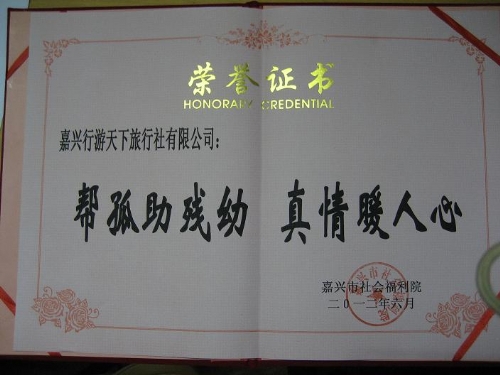 荣誉证书
HONORARY CREDENTIAL
嘉兴行游天下旅行社有限公司：
帮孤助残幼 真情暖人心
嘉兴市社会福利院
二〇一二年六月